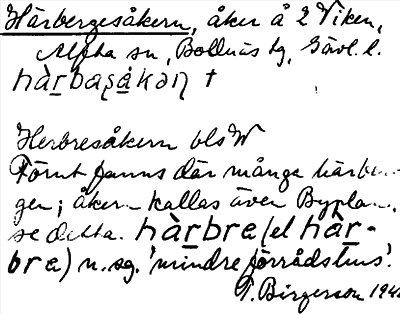 Härbergesåkern, åker å 2 Viken,
Alfta sn, Bollnäs tg, Gävl. l.
hàrbaʂåkəɳ †
Herbresåkern bls W
Förut fanns där många härber-
gen; åkern kallas även Byplan.
se detta. hàrbrə (el hàr-
brə) n. sg. 'mindre förrådshus'.
T. Birgerson 194